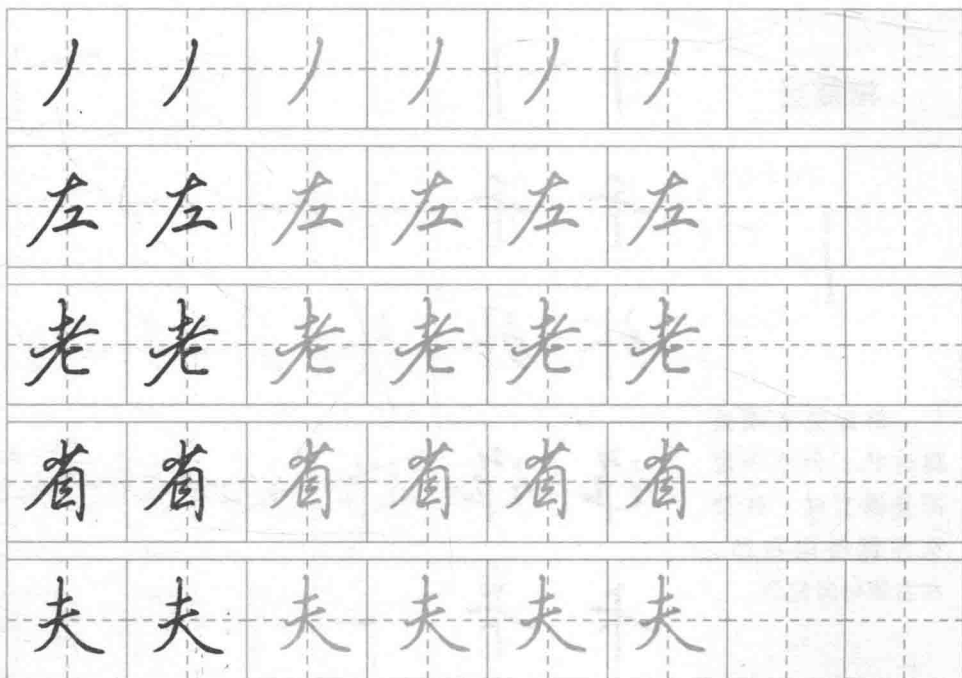 丿丿丿丿丿丿
左左左左左左
老老老老老老
省省省省省省
夫夫夫夫夫夫